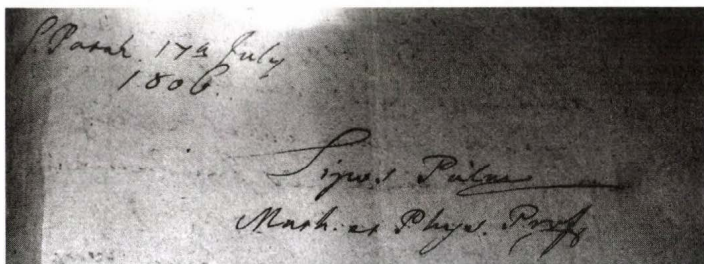 S. Patak. 17a July
1806.
Sipos Pál
Math. et Phys. Prof.